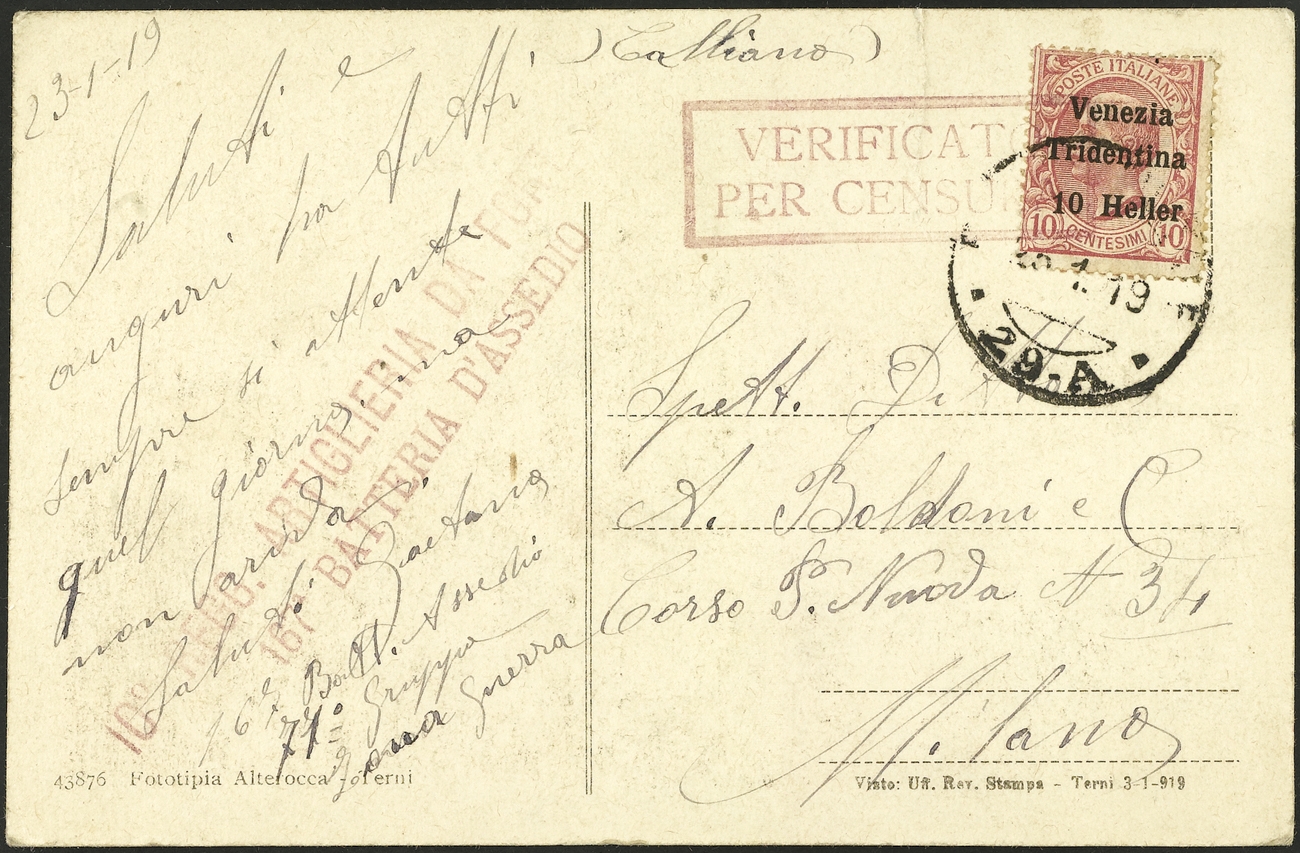 23-1-19
Saluti e
auguri ha tutti
sempre si attente
quel giorno, ma
non ariva.
Saluti Gaetano
167 Batt. Assedio
71° Gruppo
Zona Guerra
(Calliano)
VERIFICATO
PER CENSU
POSTE ITALIANE
Venezia
Tridentina
10 Heller
10 CENTESIMI 10
1.19
29.A
10° REGG. ARTIGLIERIA DA FOR
167 BATTERIA D'ASSEDIO
Spett. Ditta
A. Boldoni e C
Corso P. Nuova N 34
Milano
43876 Fototipia Alterocca - Terni
Visto: Uff. Rev. Stampa - Terni 3-1-919